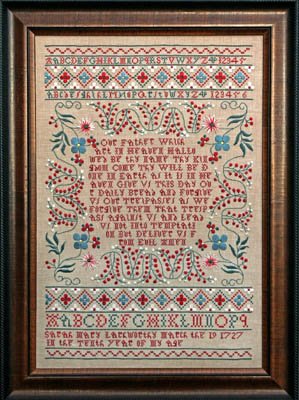 ABCDEFGHIKLMNOPQRSTUVWXYZ 12345
Our Father Which
Art in Heaven Hallo
wed be thy Name Thy Kin
gdom Come Thy Will be D
one in Earth as it is in He
aven Give Us This Day Ou
r Daily Bread and Forgive
us Our Trespasses as We
Forgive Them That Tresp
ass against Us and Lead
us not into Temptati
on But Deliver Us F
rom Evil Amen
ABCDEFGHIKLMNOPQ
Sarah Mary Latkworthy March the 19 1727
in the Tenth year of my age